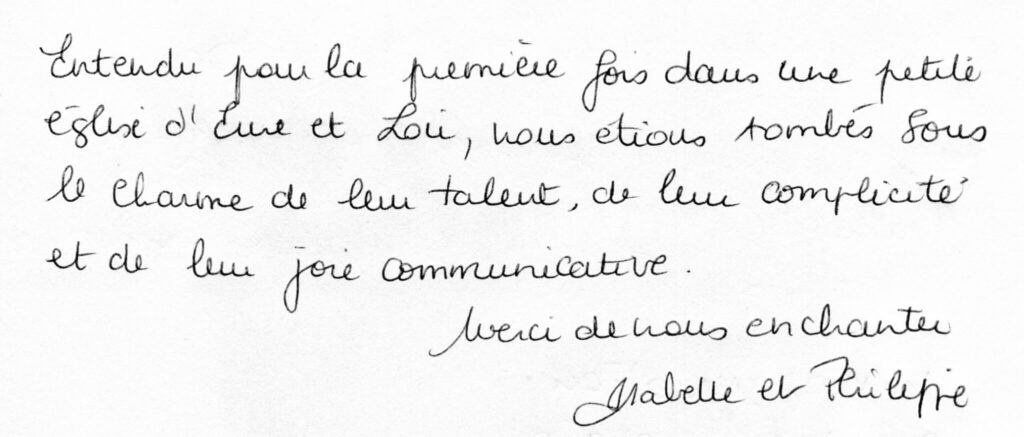 Entendu pour la première fois dans une petite
église d'Eure et Loir, nous étions tombés sous
le charme de leur talent, de leur complicité
et de leur joie communicative.
Merci de nous enchanter
Mabelle et Philippe